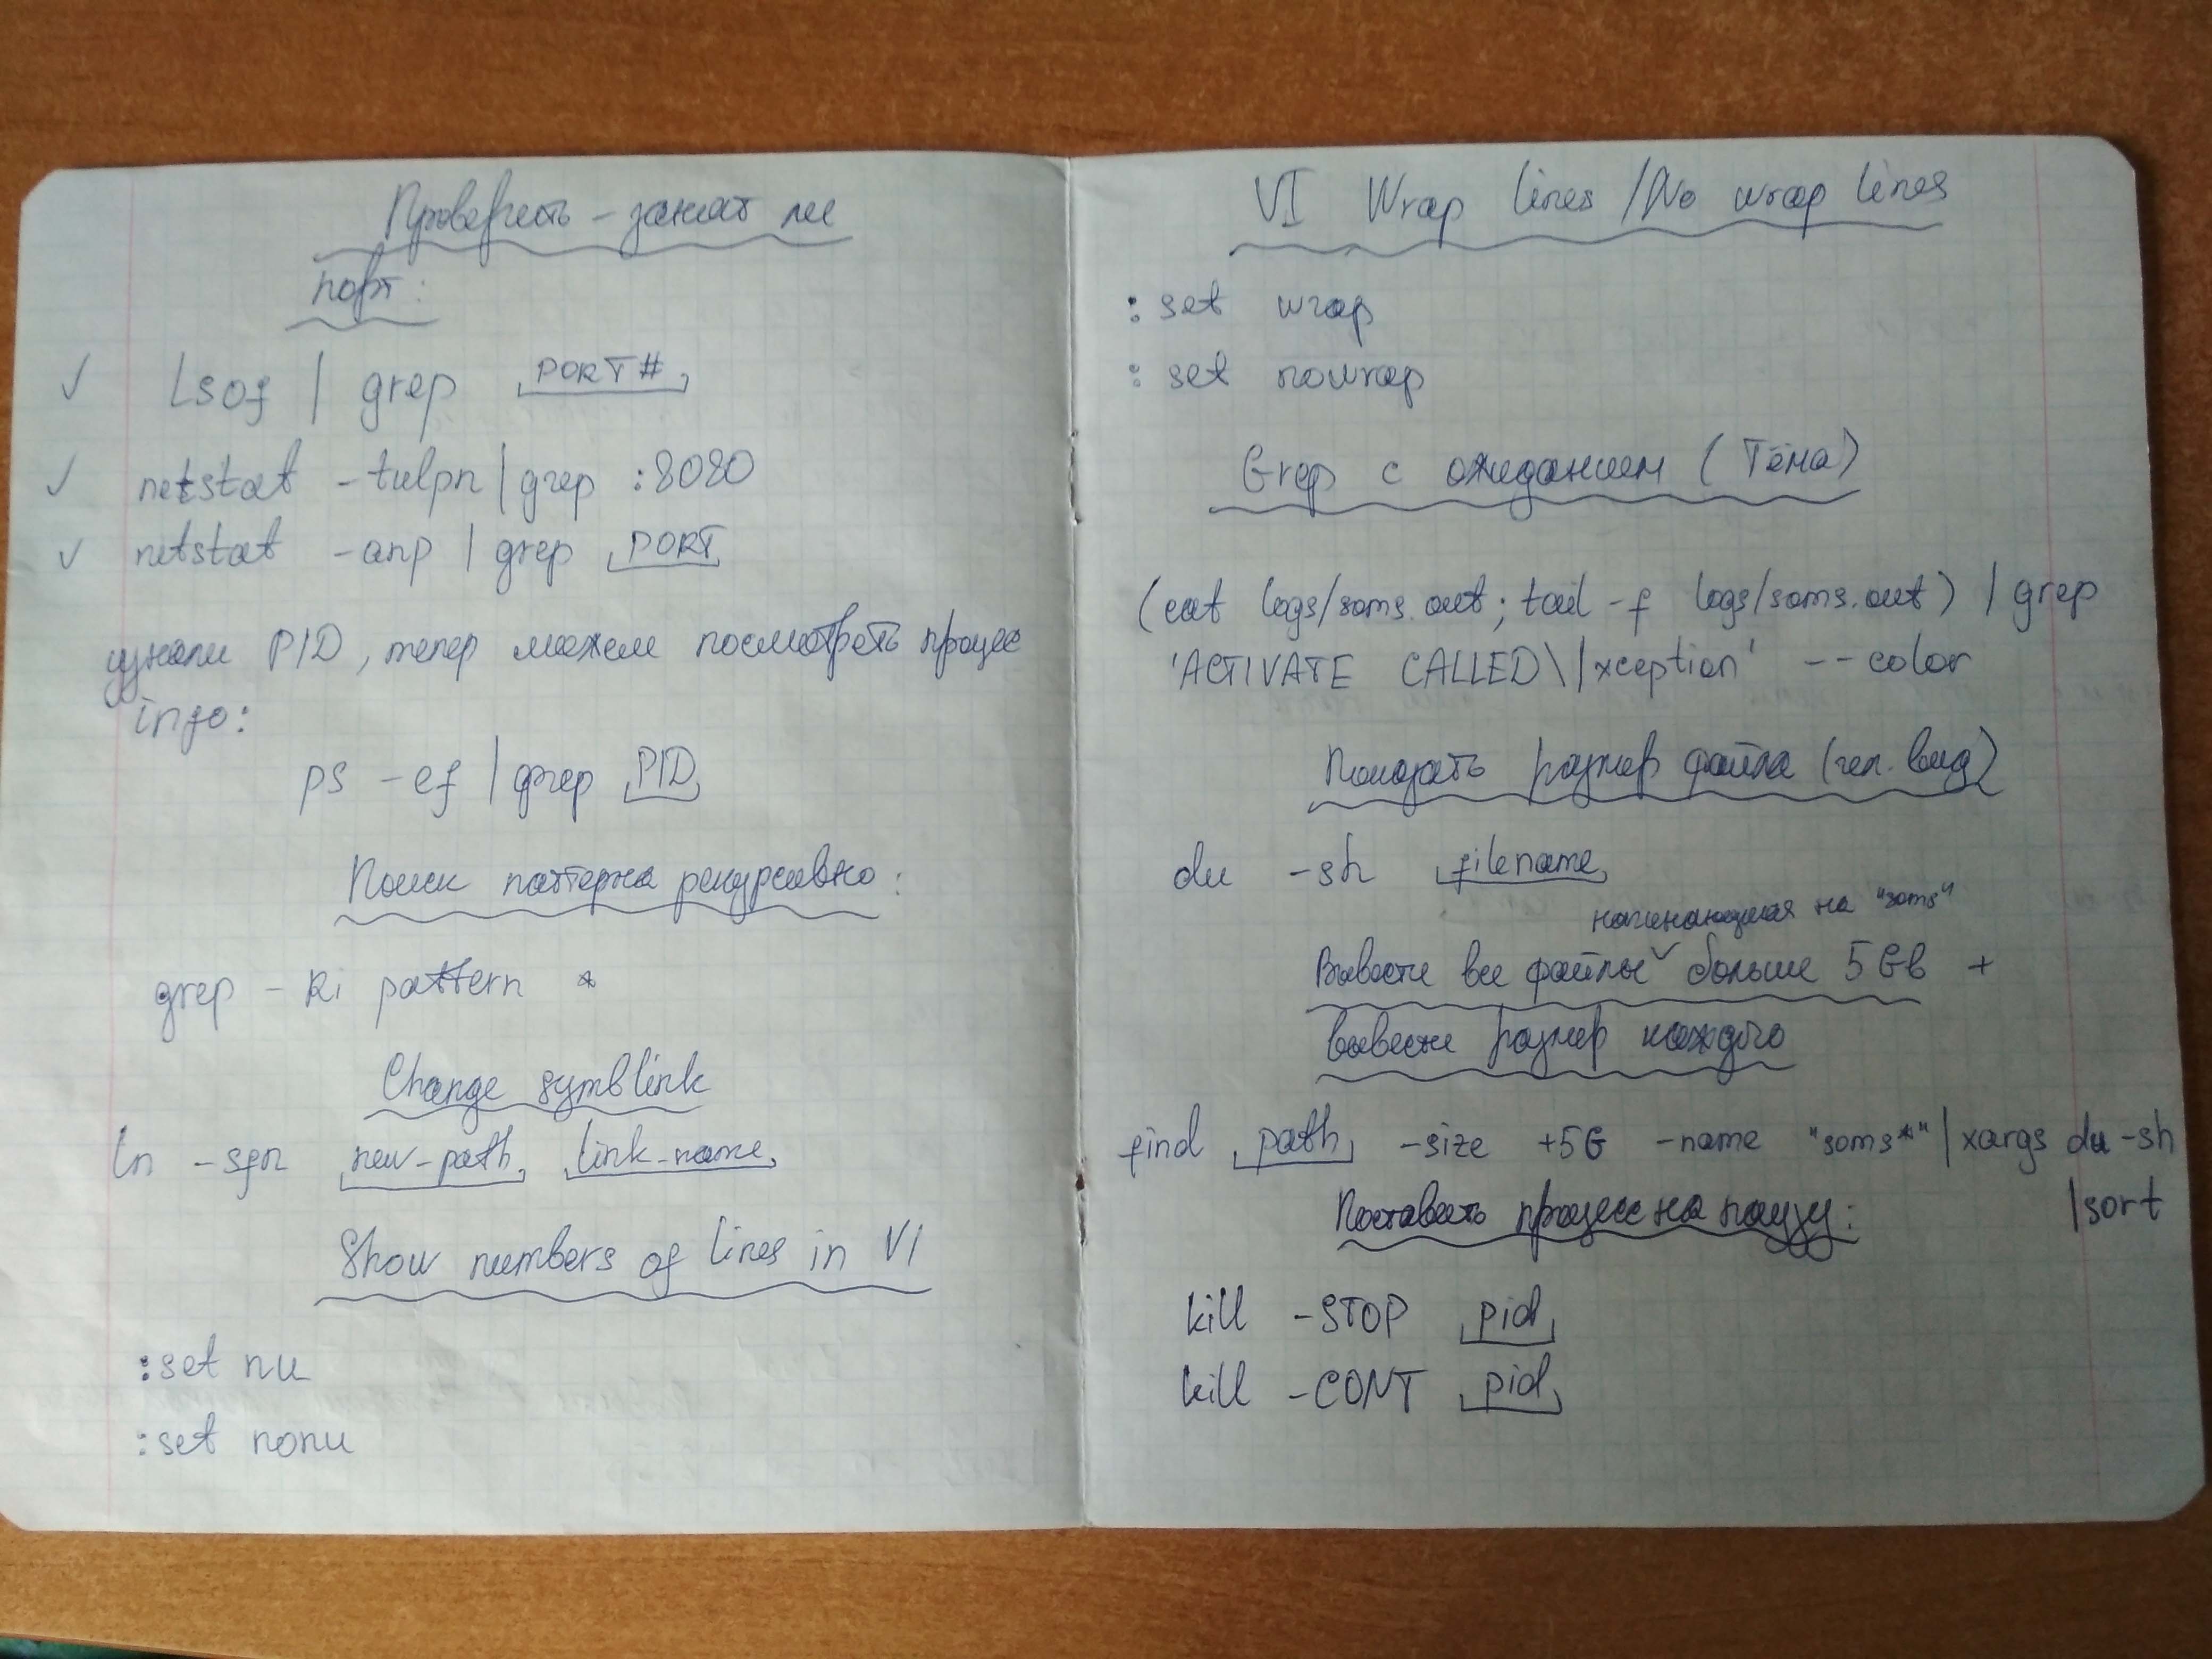 Проверить - зажат ли
порт:
✓ lsof | grep PORT#
✓ netstat -tulpn | grep :8080
✓ netstat -anp | grep PORT
узнали PID, тепер можем посмотреть процес
info:
ps -ef | grep PID
Поиск паттерна рекурсивно:
grep -Ri pattern *
Change symblink
ln -sfn new-path link-name
Show numbers of lines in VI
:set nu
:set nonu
VI Wrap lines / No wrap lines
:set wrap
:set nowrap
Grep с ожиданием (Тёма)
(cat logs/soms.out; tail -f logs/soms.out) | grep
'ACTIVATE CALLED\|xception' --color
Показать размер файла (чел. вид)
du -sh filename
начинающиеся на "soms"
Вывести все файлы ✓ больше 5 Gb +
вывести размер каждого
find path -size +5G -name "soms*" | xargs du -sh
| sort
Поставить процесс на паузу:
kill -STOP pid
kill -CONT pid